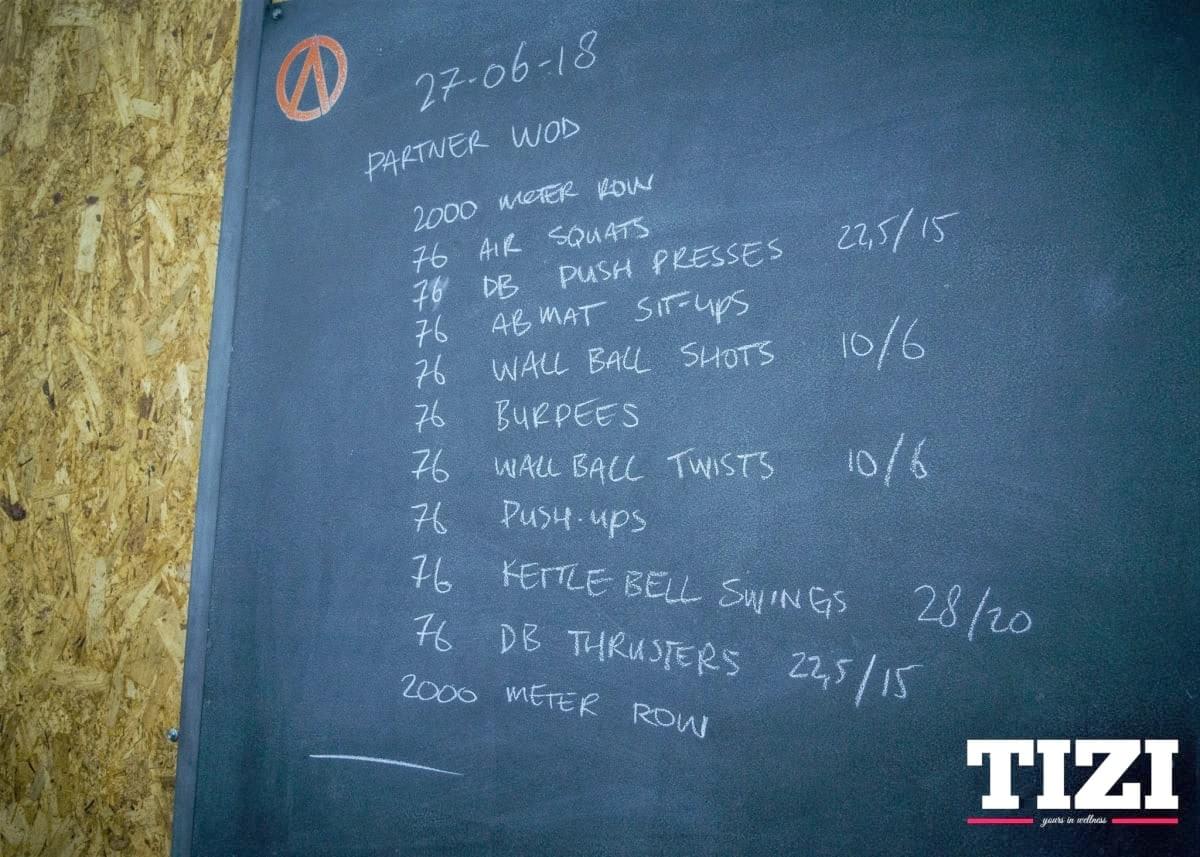 27-06-18
PARTNER WOD
2000 METER ROW
76 AIR SQUATS
76 DB PUSH PRESSES 22,5/15
76 ABMAT SIT-UPS
76 WALL BALL SHOTS 10/6
76 BURPEES
76 WALL BALL TWISTS 10/6
76 PUSH-UPS
76 KETTLEBELL SWINGS 28/20
76 DB THRUSTERS 22,5/15
2000 METER ROW
TIZI
yours in wellness